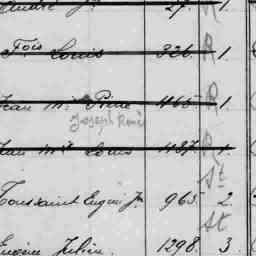 André Jn 27. R 1
Fois Louis 326. R 1
Jean M. Pierre 465 R 1
Joseph René
Jean Mie Louis 487. R 1.
St
Toussaint Eugène Jn 965 2.
St
Eugène Julien. 1298. 3